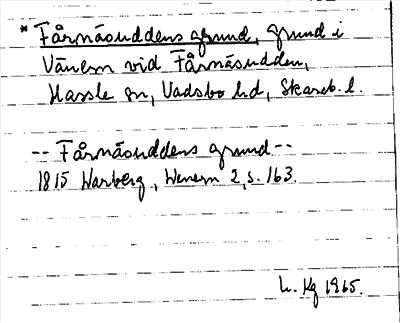 * Fårnäsuddens grund, grund i
Vänern vid Fårnäsudden,
Hassle sn, Vadsbo hd, Skarab. l.
-- Fårnäsuddens grund --
1815 Warberg, Wenern 2, s. 163.
L. Kg 1965.